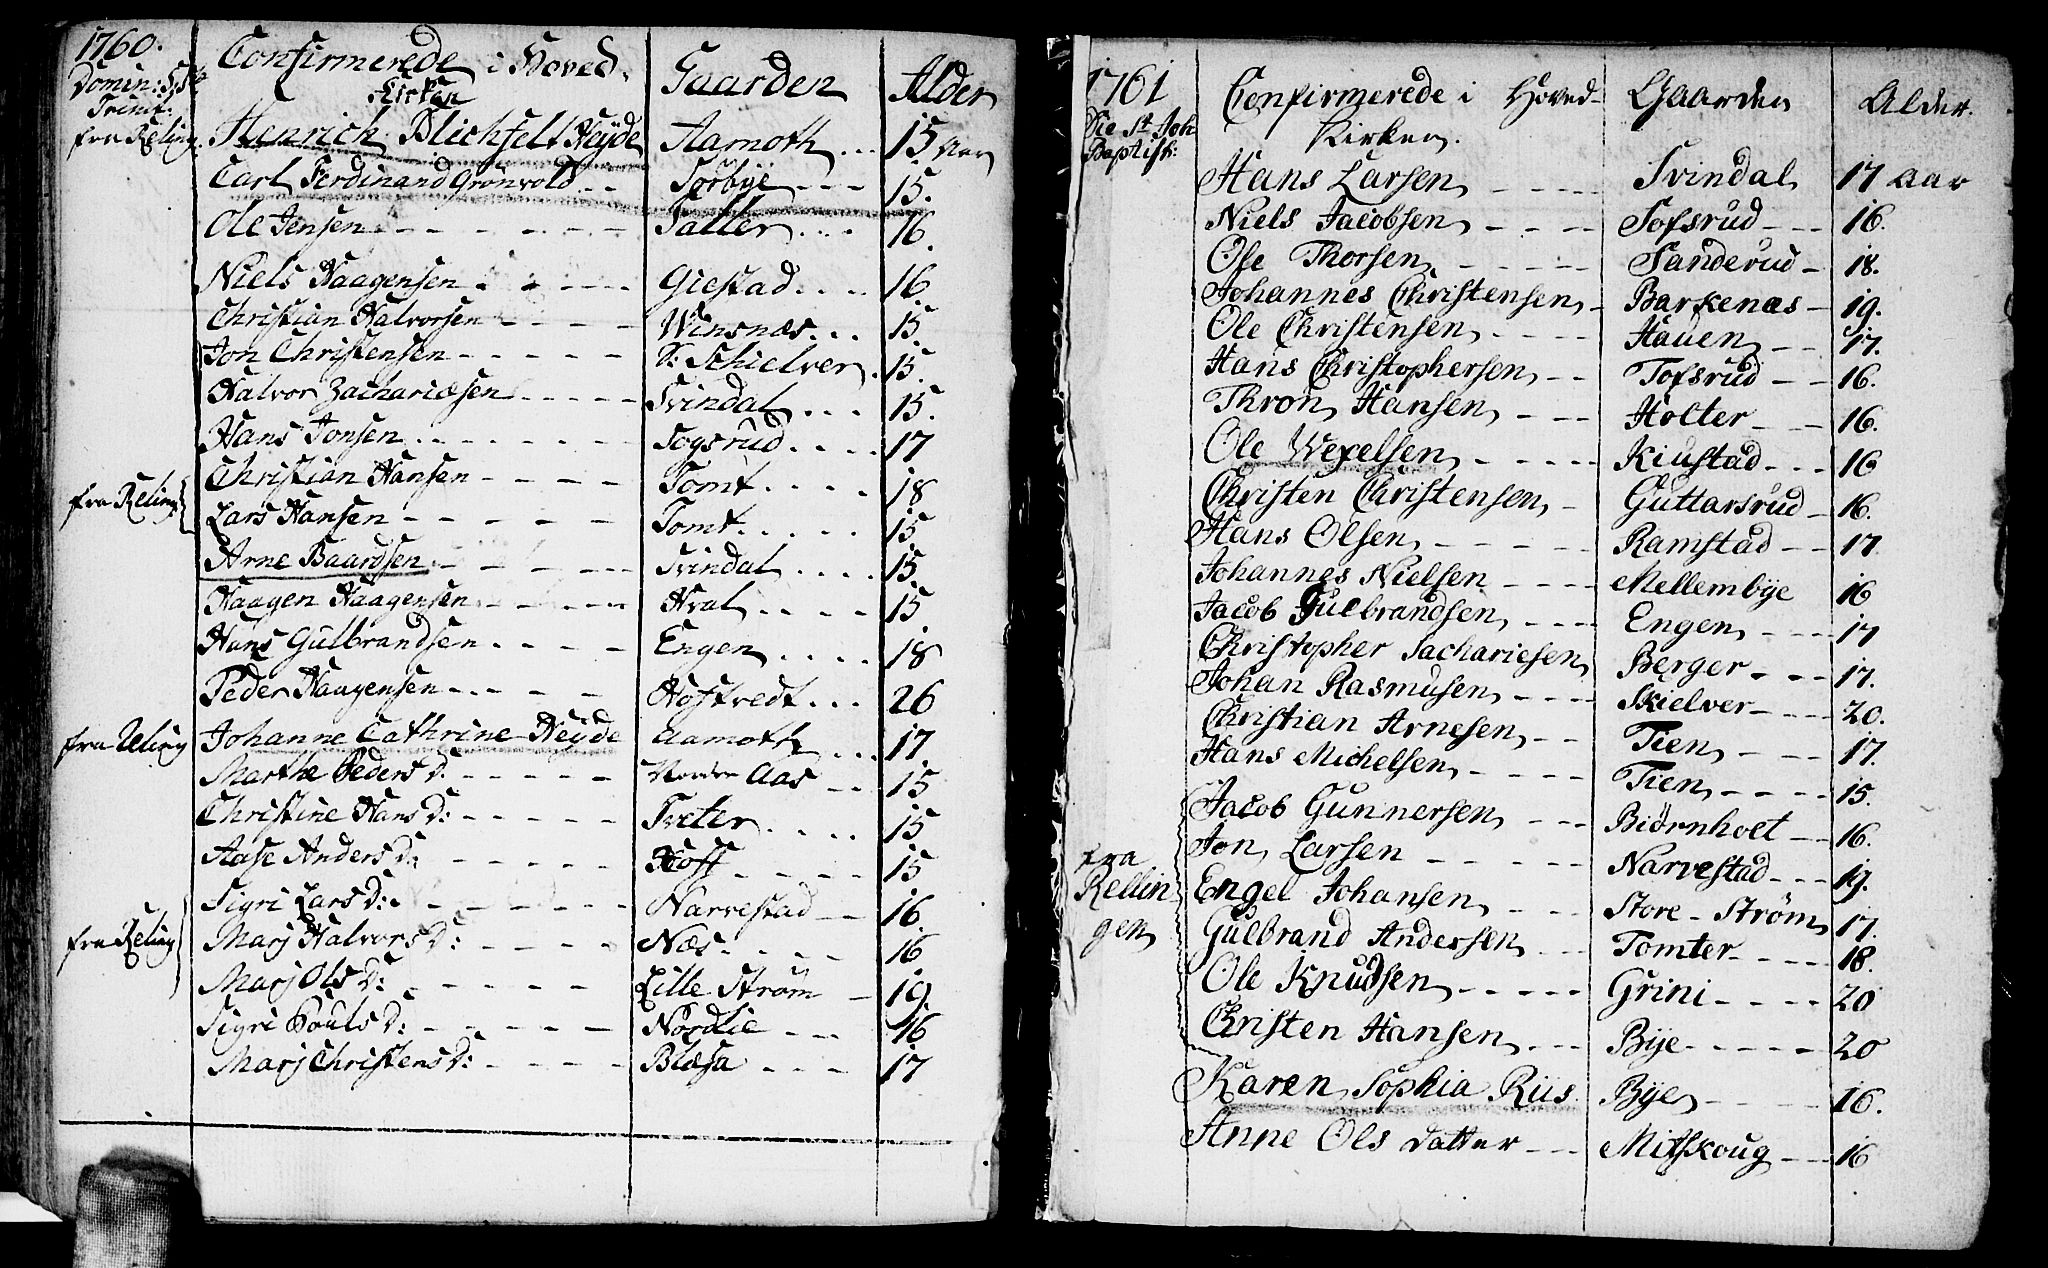 1760. Confirmerede i Hoved- Gaarden Alder
Domin: 5ta Kirken
Trinit.
fra Reling. Henrich Blichfelt Heyde Aamoth ... 15 Aar
Carl Ferdinand Grønvold -- Sørbye --- 15.
Ole Jensen - - - - - - Tatter ... 16.
Niels Haagensen - - - - Giestad .... 16
Christian Halvorsen - - - - Winsnæs ... 15.
Jon Christensen - - - - - S: Schielver . 15.
Halvor Zachariæsen - - - - Svindal ... 15.
Hans Jonsen . - - - - - Sogsrud .... 17
Christian Hansen - - - - Tomt .... 18
fra Reling Lars Hansen - - - - - Tomt ..... 15
Arne Baardsen - - - - - Svindal .... 15
Haagen Haagensen - - - - Hval .... 15
Hans Gulbrandsen - - - - Engen .... 18
Peder Haagensen - - - - Hoftvedt ... 26
fra Reling Johanne Cathrine Heyde Aamoth ... 17
Marthe Peders D: - - - - - Nordre Aas -- 15
Christine Hans D: - - - - - Tveter .... 15
Aase Anders D: - - - - - Hoff - - - - 15
Sigri Lars D: - - - - - Narvestad -- 16.
fra Reling Marj Halvors D: - - - - Næs . - - - 16
Marj Ols D: - - - - - Lille Strøm - 19.
Sigri Pouls D: - - - - - Nordlie --- 16
Marj Christens D: - - - - Blæsa --- 17
1761 Confirmerede i Hoved- Gaarden Alder.
Die St Joh Kirken.
Baptist:
Hans Larsen - - - - Svindal 17 Aar
Niels Jacobsen - - - - Tofsrud --- 16.
Ole Thorsen - - - - Sanderud - 18.
Johannes Christensen - Barkenæs - 19.
Ole Christensen - - - - Hauen -- 17.
Hans Christophersen -- Tofsrud -- 16.
Thron Hansen - - - Holter --- 16.
Ole Wexelsen - - - - Kiustad --- 16
Christen Christensen - Guttarsrud - 16.
Hans Olsen - - - - Ramstad -- 17
Johannes Nielsen - - - - Mellembye 16
Jacob Gulbrandsen - - - - Engen --- 17
Christopher Sachariesen Berger - -- 17.
Johan Rasmusen - - - - Skielver --- 20.
Christian Arnesen -- Tien - -- 17.
Hans Michelsen - - - - Tien - - - - 15.
Jacob Gunnersen --- Biørnholt -- 16.
fra Jon Larsen - - - - Narvestad --- 19.
Rellin Engel Johansen - -- Store-Strøm 17.
gen Gulbrand Andersen -- Tomter - - - - 18.
Ole Knudsen - - - - Grini - - - - 20
Christen Hansen --- Bije - - - - - 20
Karen Sophia Riis Bye - - - - - 16.
Anne Ols Datter --- Mitskoug --- 16